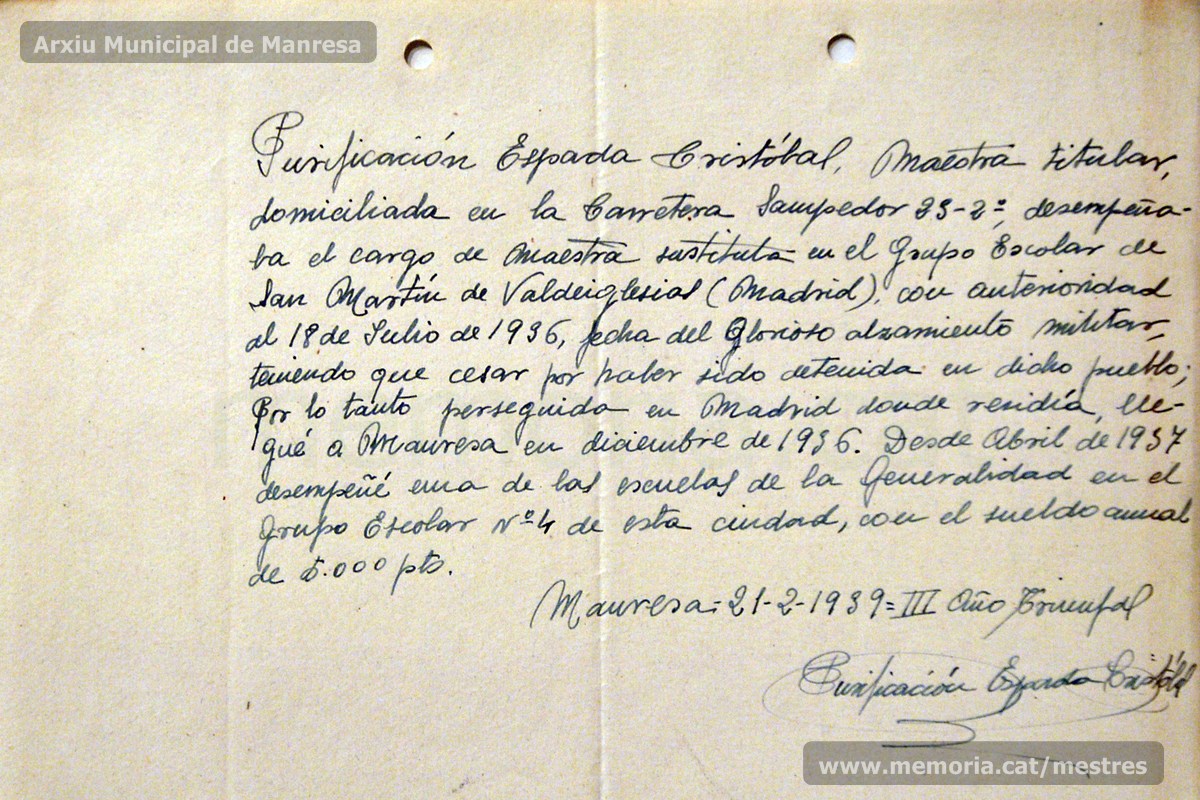 Arxiu Municipal de Manresa
Purificación Espada Cristóbal, Maestra titular,
domiciliada en la Carretera Sampedor 23-2º, desempeña-
ba el cargo de Maestra sustituta en el Grupo Escolar de
San Martín de Valdeiglesias (Madrid), con anterioridad
al 18 de Julio de 1936, fecha del Glorioso alzamiento militar,
teniendo que cesar por haber sido detenida en dicho pueblo;
Por lo tanto perseguida en Madrid donde residía, lle-
gué a Manresa en diciembre de 1936. Desde Abril de 1937
desempeñé una de las escuelas de la Generalidad en el
Grupo Escolar Nº 4 de esta ciudad, con el sueldo anual
de 5.000 pts.
Manresa = 21-2-1939 = III Año Triunfal
Purificación Espada Cristóbal
www.memoria.cat/mestres